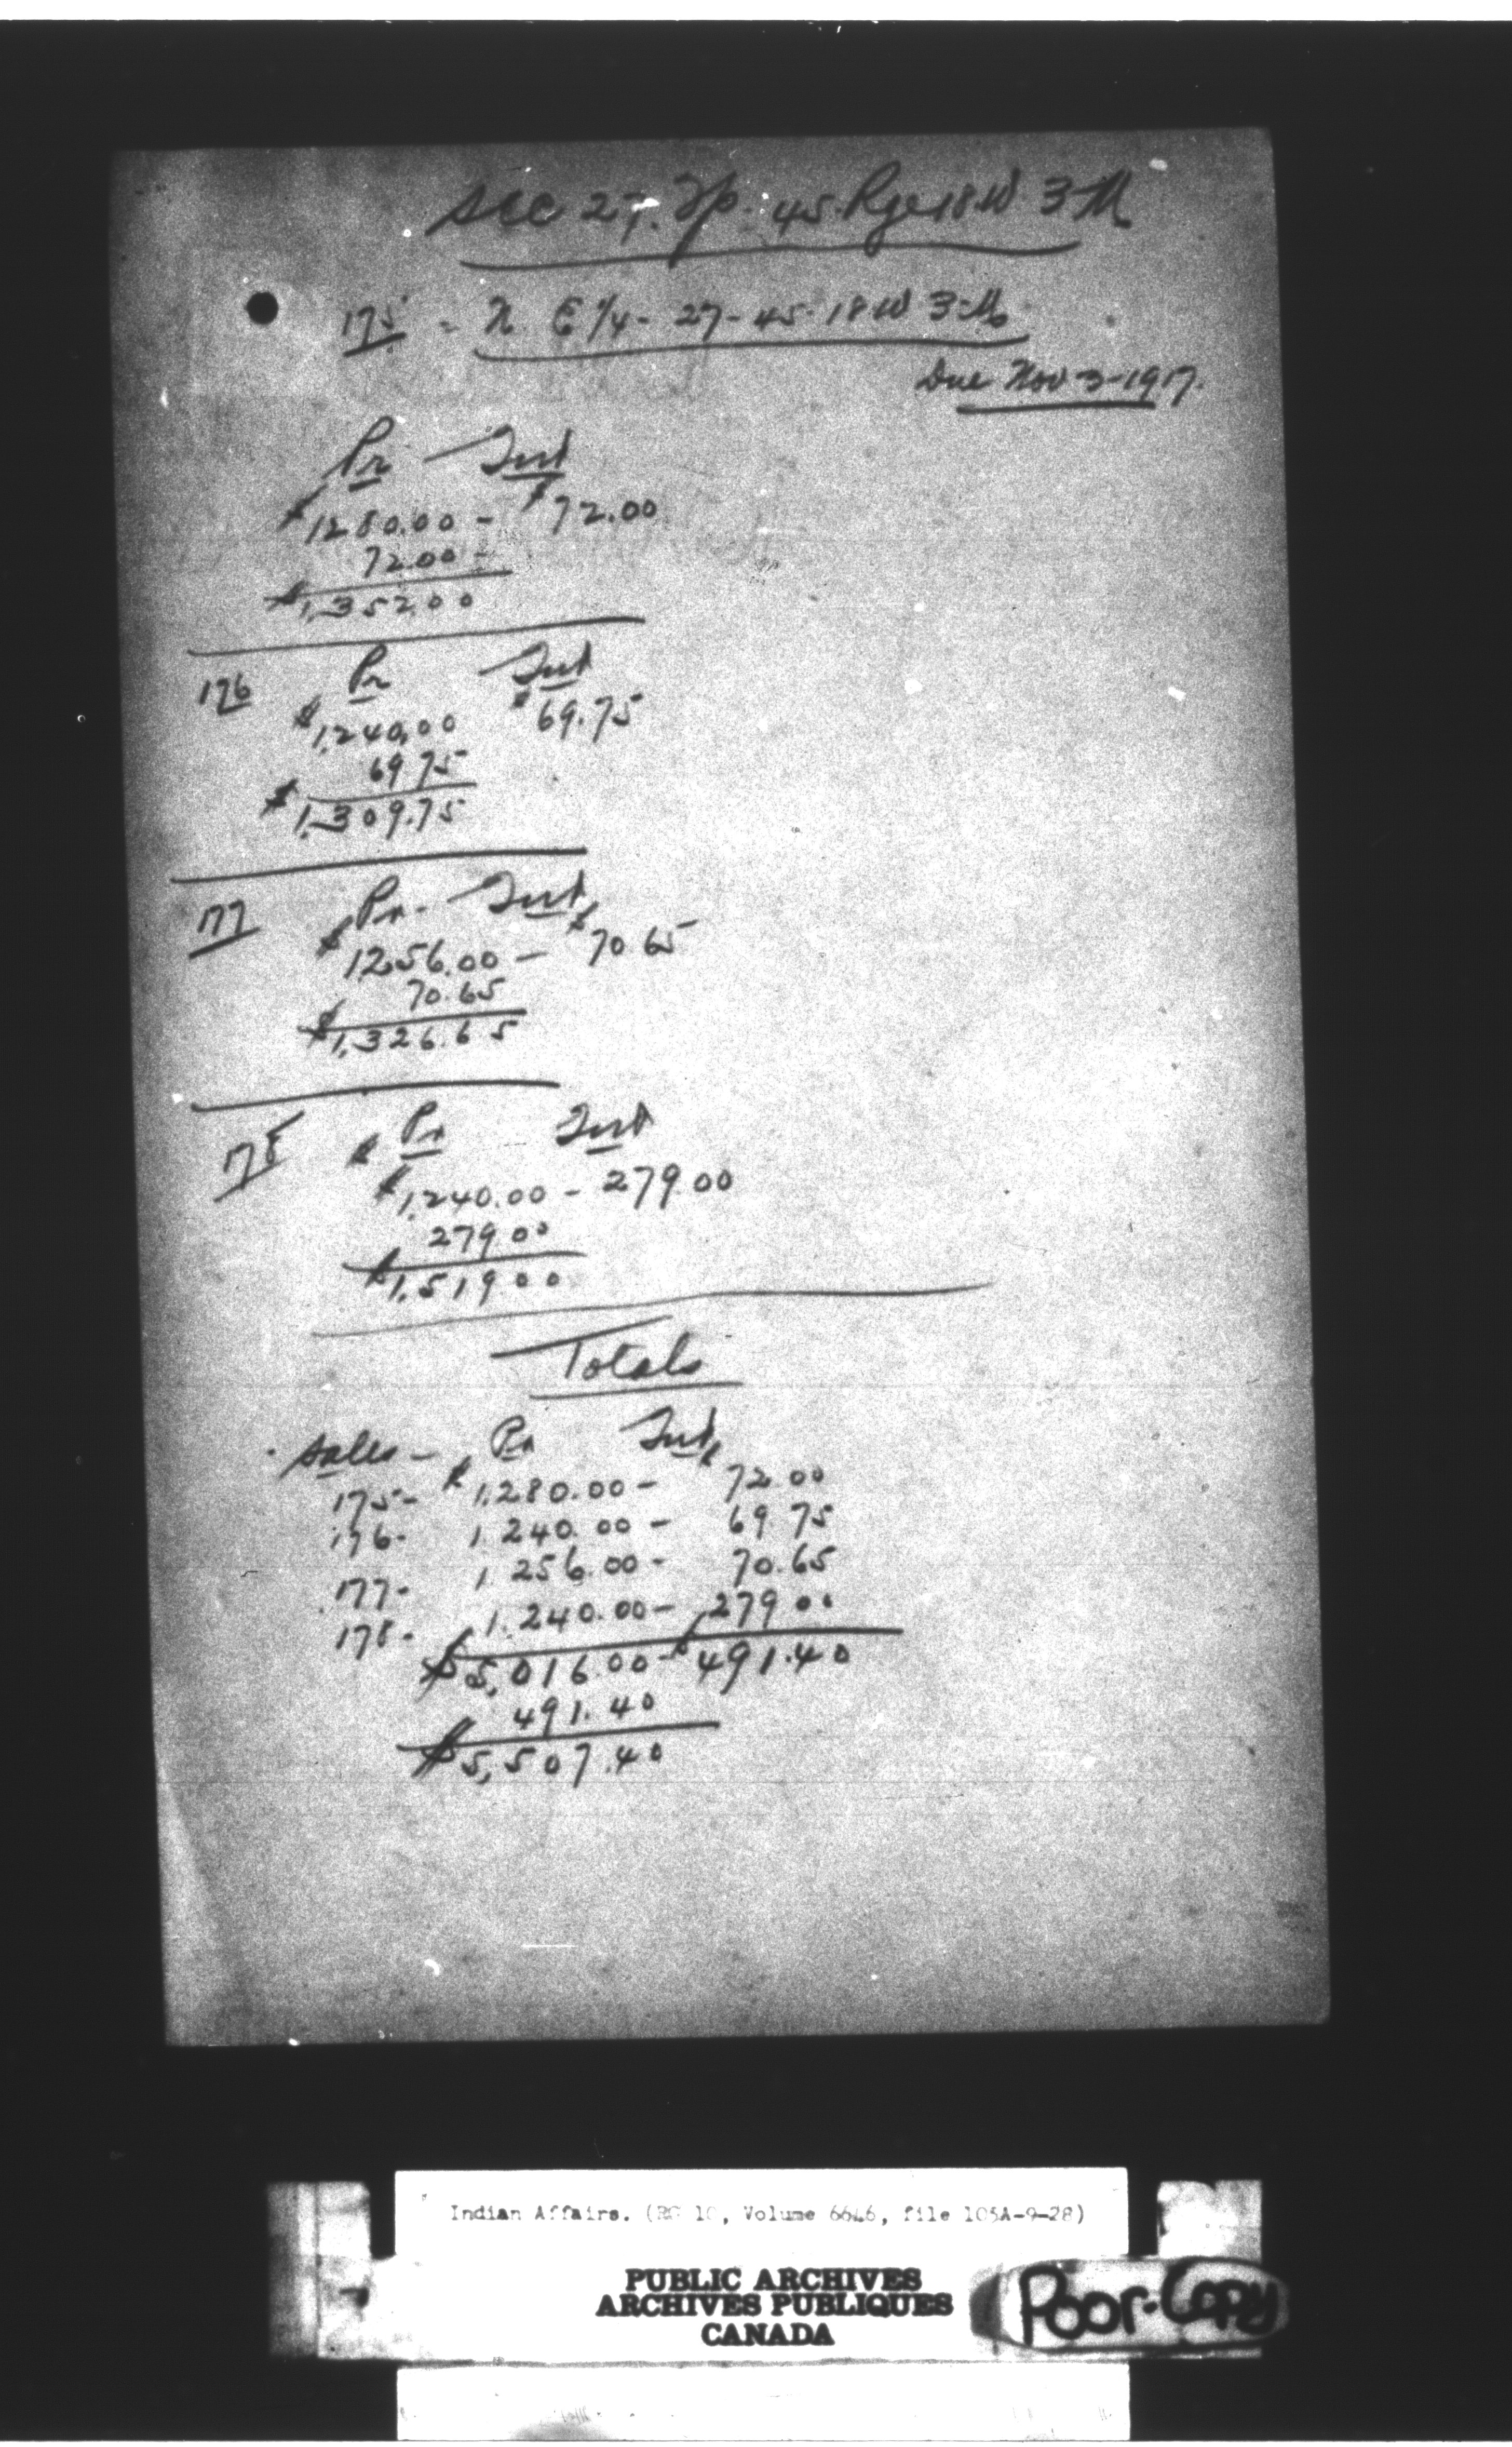 Sec 27. Tp. 45. Rge 18. W. 3 M
175 - N. E 1/4 - 27 - 45. 18 W 3 M
Due Nov 3 - 1917.
Pr - Int
$1280.00 - $72.00
72.00 -
$1,352.00
176 Pr Int
$1,240.00 $69.75
69.75
$1,309.75
177 Pr. Int
$1256.00 - $70.65
70.65
$1,326.65
178 $ Pr Int
$1,240.00 - 279.00
279.00
$1,519.00
Totals
Sales - Pr Int
175 - $1,280.00 - $72.00
176 - 1.240.00 - 69.75
177 - 1.256.00 - 70.65
178 - 1.240.00 - 279.00
$5,016.00 - $491.40
491.40
$5,507.40
Indian Affairs. (RG 10, Volume 6646, file 105A-9-28)
PUBLIC ARCHIVES
ARCHIVES PUBLIQUES
CANADA
Poor-Copy